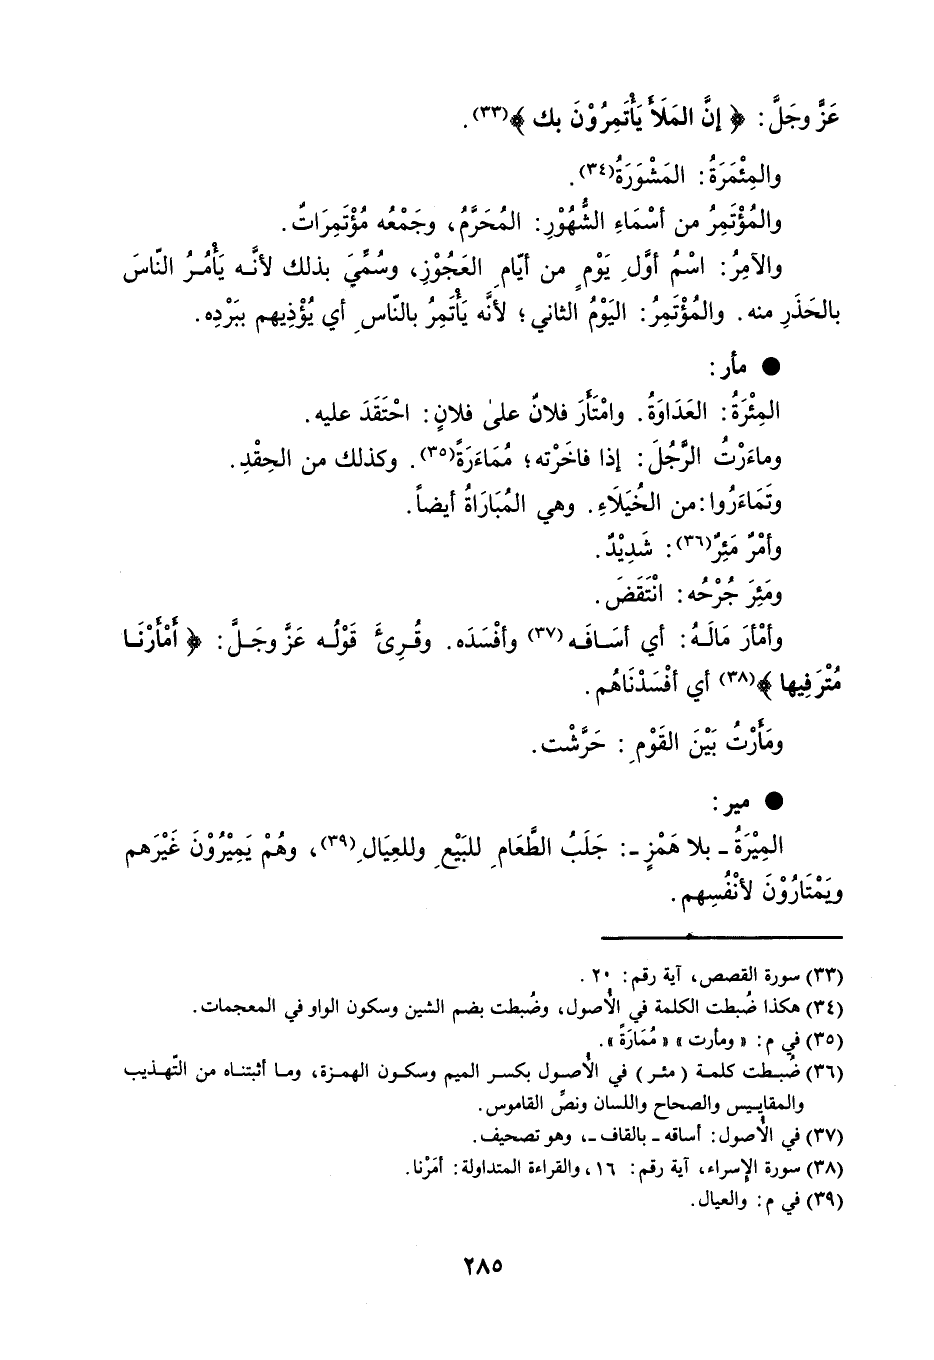 عَزَّ وجَلَّ : ﴿ إنَّ المَلَأَ يَأْتَمِرُوْنَ بك ﴾(٣٣) .
والمِئْمَرَةُ : المَشْوَرَةُ(٣٤) .
والمُؤْتَمِرُ من أسْمَاءِ الشُّهُوْرِ : المُحَرَّمُ ، وجَمْعُه مُؤْتَمِرَاتٌ .
والآمِرُ : اسْمُ أوَّلِ يَوْمٍ من أيّامِ العَجُوْزِ ، وسُمِّيَ بذلك لأنَّه يَأْمُرُ النّاسَ
بالحَذَرِ منه . والمُؤْتَمِرُ : اليَوْمُ الثاني ؛ لأنَّه يَأْتَمِرُ بالنّاسِ أي يُؤْذِيهم ببَرْدِه .
● مأر :
المِئْرَةُ : العَدَاوَةُ . وامْتَأَرَ فلانٌ علىٰ فلانٍ : احْتَقَدَ عليه .
وماءَرْتُ الرَّجُلَ : إذا فاخَرْته ؛ مُمَاءَرَةً(٣٥) . وكذلك من الحِقْدِ .
وتَمَاءَرُوا : من الخُيَلَاءِ . وهي المُبَارَاةُ أيضاً .
وأمْرٌ مَئِرٌ(٣٦) : شَدِيْدٌ .
ومَئِرَ جُرْحُه : انْتَقَضَ .
وأمْأرَ مَالَهُ : أي أسَافَه(٣٧) وأفْسَدَه . وقُرِئَ قَوْلُه عَزَّ وجَلَّ : ﴿ أَمْأَرْنَا
مُتْرَفِيها ﴾(٣٨) أي أفْسَدْنَاهُم .
ومَأَرْتُ بَيْنَ القَوْمِ : حَرَّشْت .
● مير :
المِيْرَةُ ـ بلا هَمْزٍ ـ : جَلَبُ الطَّعَامِ للبَيْعِ وللعِيَالِ(٣٩) ، وهُمْ يَمِيْرُوْنَ غَيْرَهم
ويَمْتَارُوْنَ لأنْفُسِهم .
(٣٣) سورة القصص ، آية رقم : ٢٠ .
(٣٤) هكذا ضُبطت الكلمة في الأُصول ، وضُبطت بضم الشين وسكون الواو في المعجمات .
(٣٥) في م : « ومأرت » « مُمَارَةً » .
(٣٦) ضُبطت كلمة ( مئر ) في الأُصول بكسر الميم وسكون الهمزة ، وما أثبتناه من التّهذيب
والمقاييس والصحاح واللسان ونصِّ القاموس .
(٣٧) في الأُصول : أساقه ـ بالقاف ـ ، وهو تصحيف .
(٣٨) سورة الإسراء ، آية رقم : ١٦ ، والقراءة المتداولة : أمَرْنا .
(٣٩) في م : والعيال .
٢٨٥